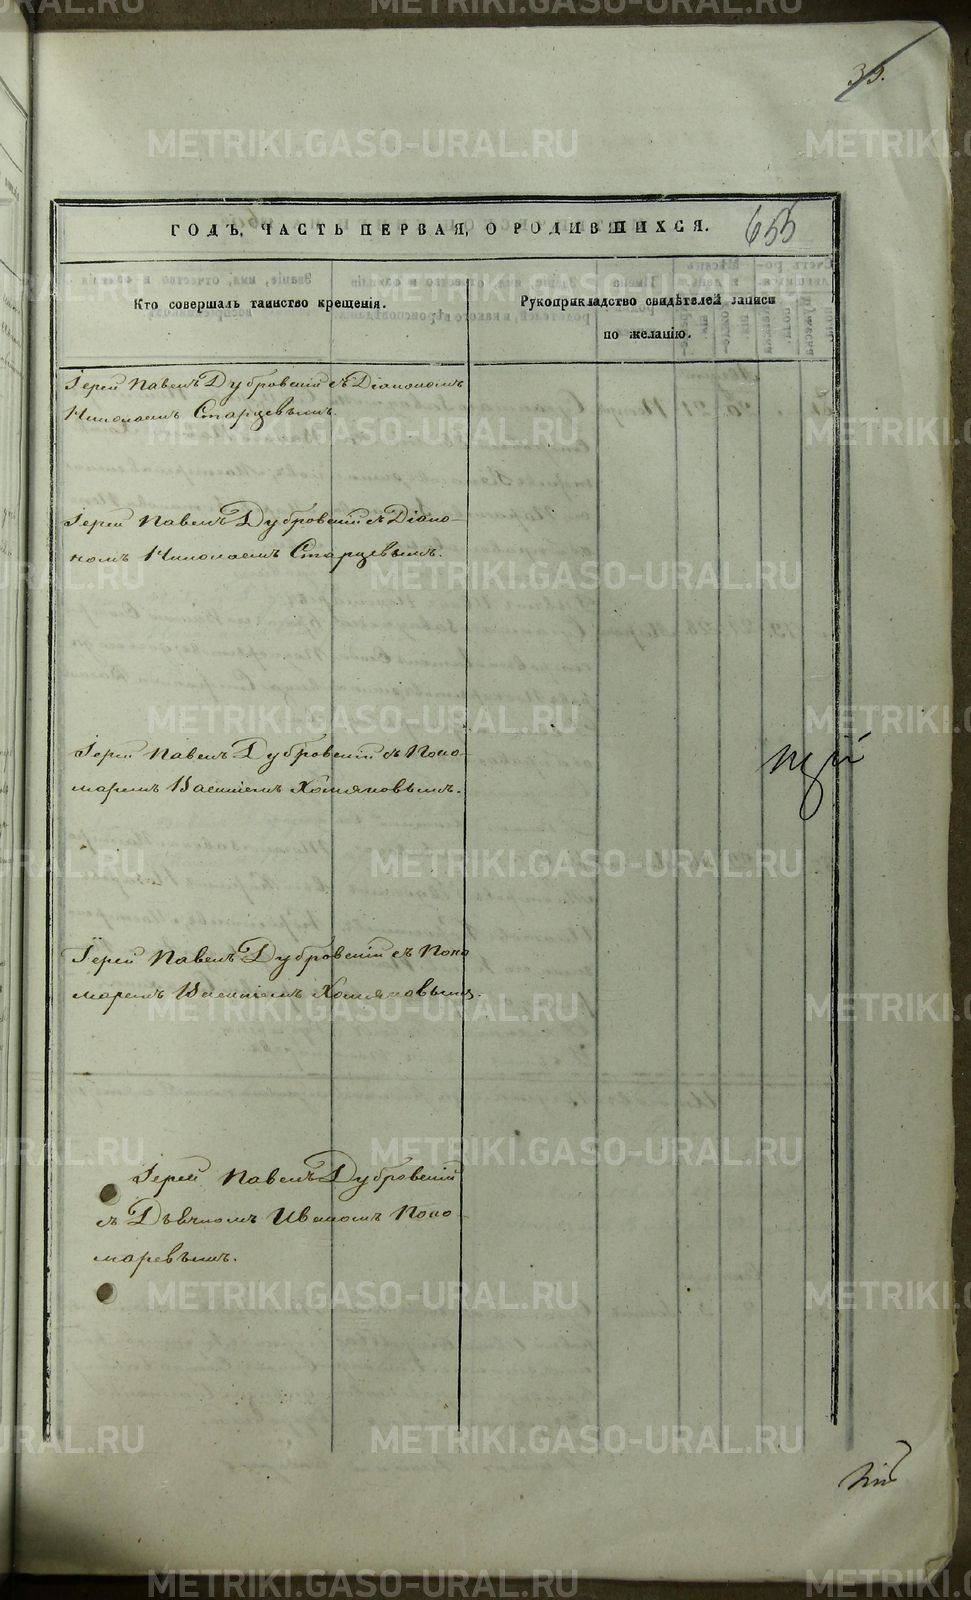 35.
ГОДЪ, ЧАСТЬ ПЕРВАЯ, О РОДИВШИХСЯ. 655
Кто совершалъ таинство крещенія.
Рукоприкладство свидѣтелей записи
по желанію.
Іерей Павелъ Дубровскій съ Діакономъ
Николаемъ Старцевымъ.
Іерей Павелъ Дубровскій съ Діако-
номъ Николаемъ Старцевымъ.
Іерей Павелъ Дубровскій съ Поно-
маремъ Василіемъ Хомяковымъ.
Іерей Павелъ Дубровскій съ Поно
маремъ Василіемъ Хомяковымъ.
Іерей Павелъ Дубровскій
съ Дьячкомъ Иваномъ Поно
маревымъ.
METRIKI.GASO-URAL.RU